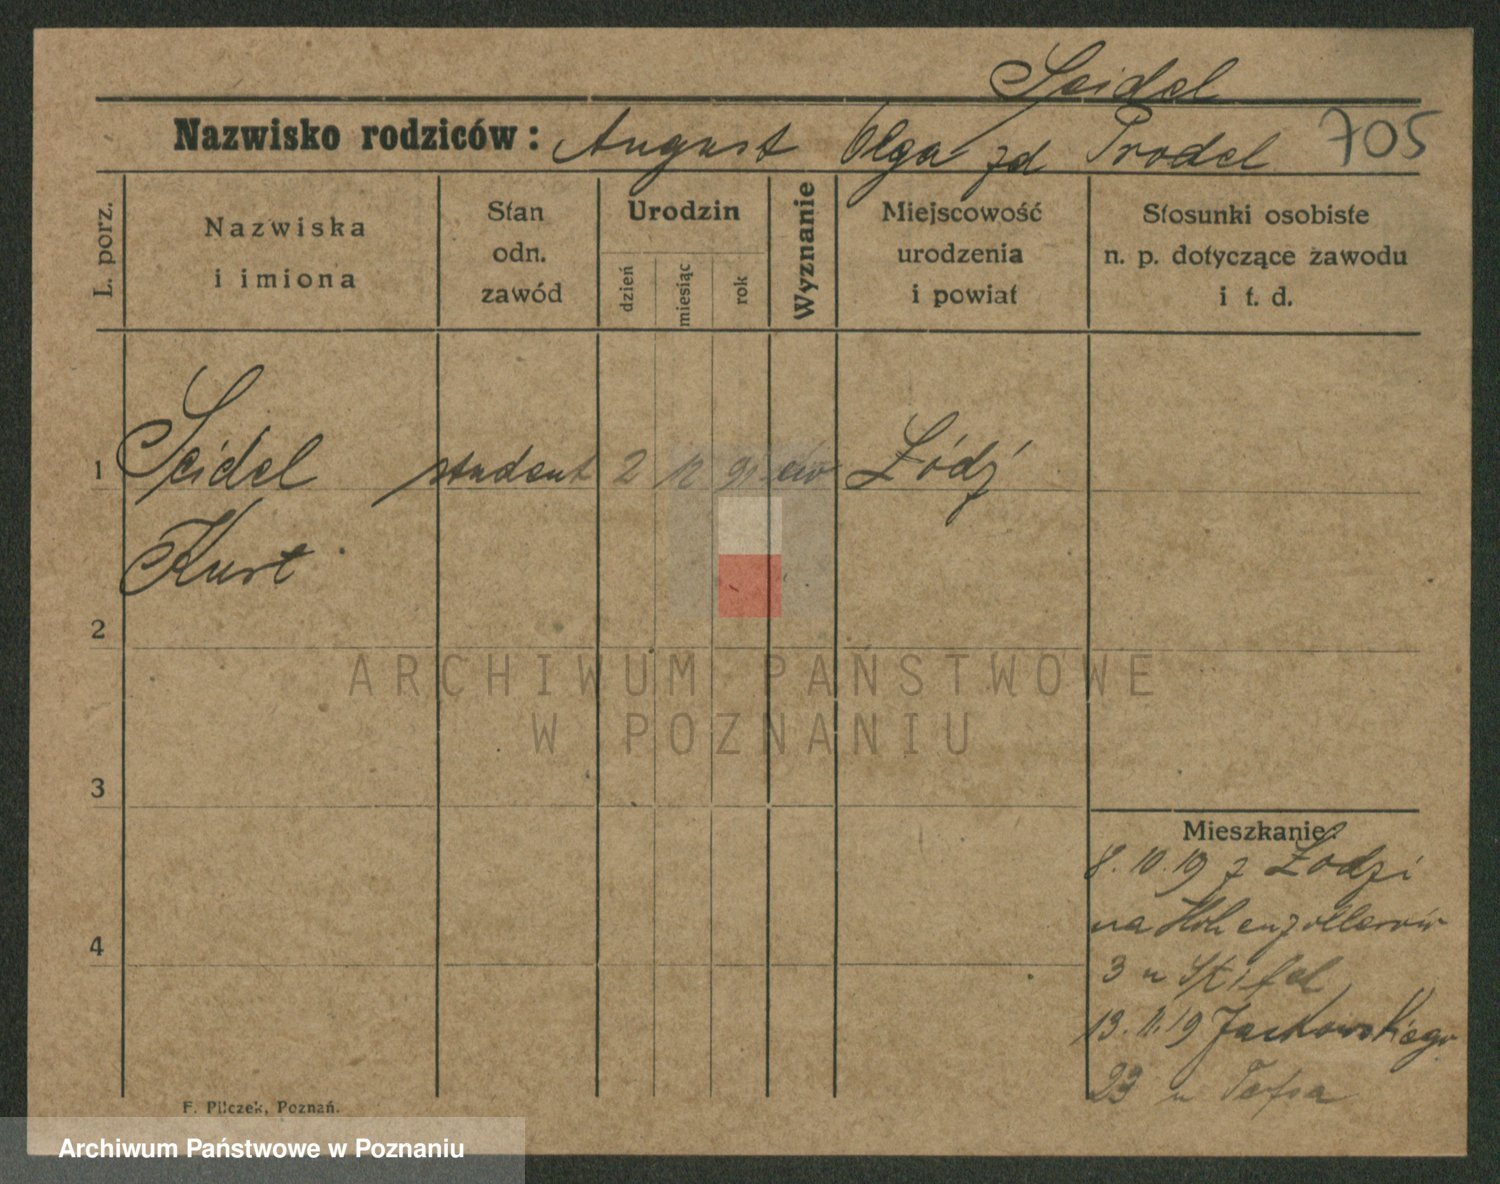 Seidel
Nazwisko rodziców: August Olga zd Prodel 705
L. porz.
Nazwiska
i imiona
Stan
odn.
zawód
Urodzin
dzień
miesiąc
rok
Wyznanie
Miejscowość
urodzenia
i powiat
Stosunki osobiste
n. p. dotyczące zawodu
i t. d.
1 Seidel student 2 12 91 ew Łódź
Kurt
2
3
4
Mieszkanie:
8.10.19 z Łodzi
na Hohenzollernów
3 u Stifel
13.11.19 Jackowskiego
23 u
F. Pilczek, Poznań.
ARCHIWUM PAŃSTWOWE
W POZNANIU
Archiwum Państwowe w Poznaniu